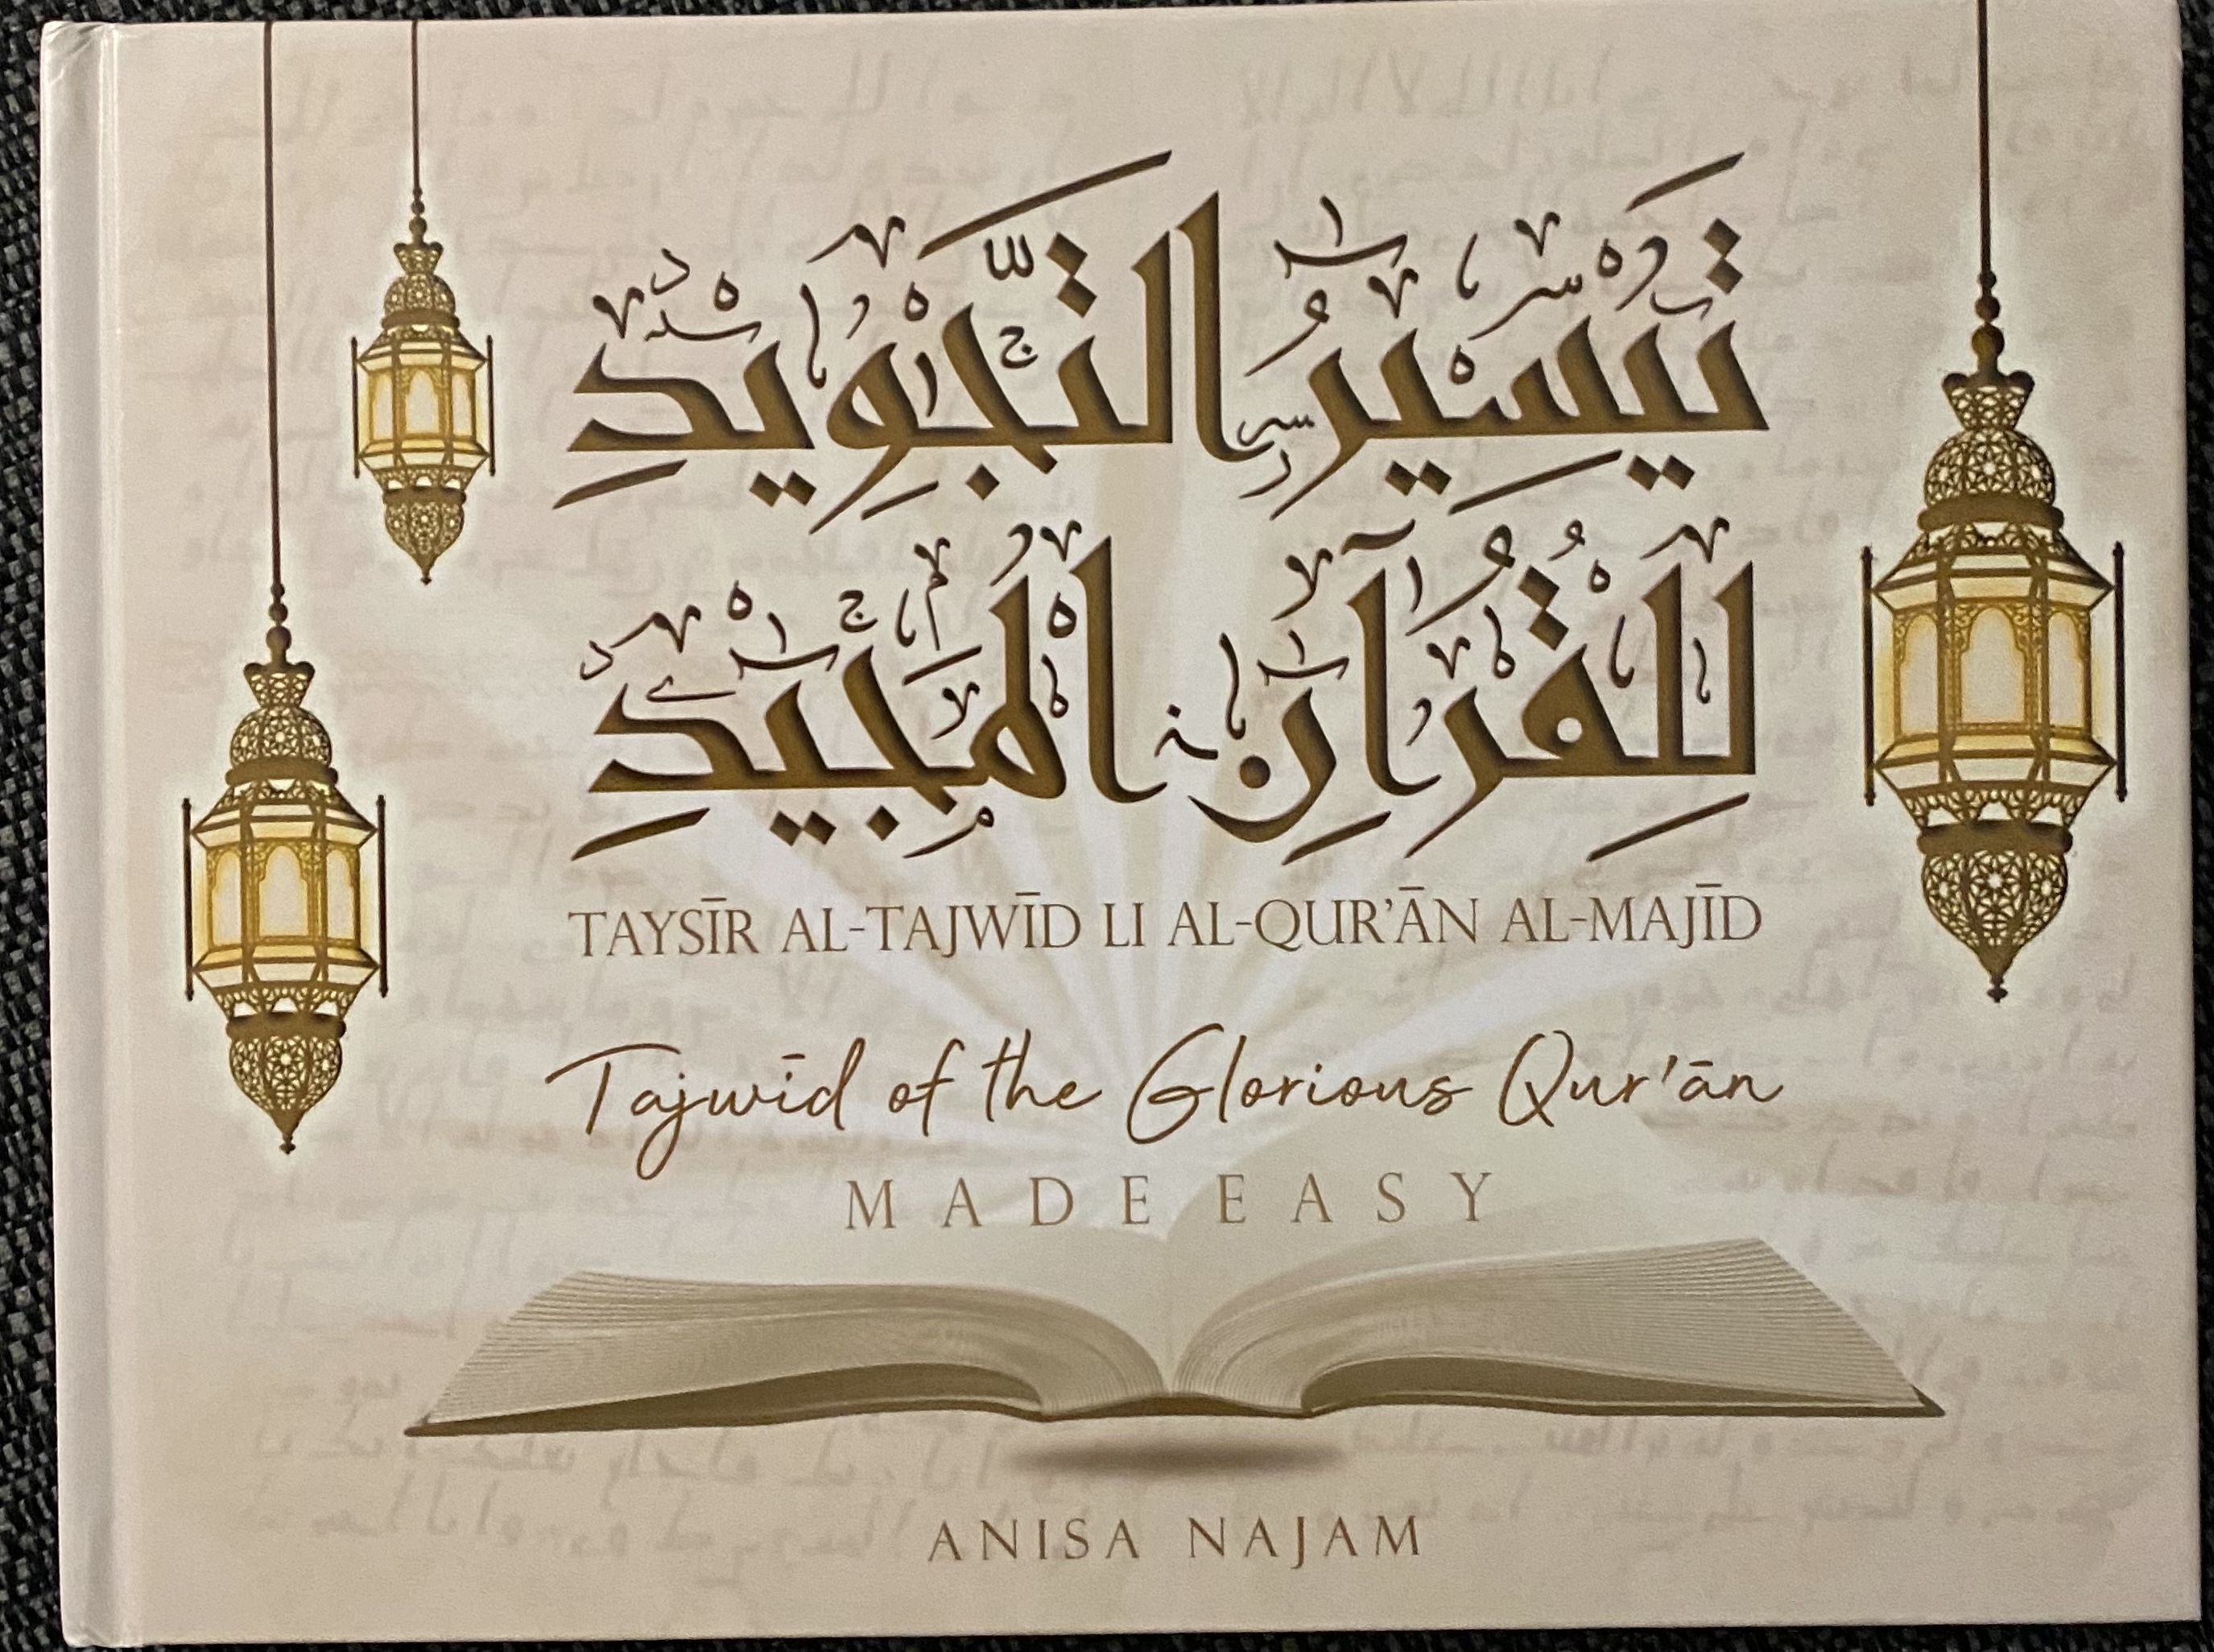 تَيْسِيرُ التَّجْوِيدِ
لِلْقُرْآنِ الْمَجِيدِ
TAYSĪR AL-TAJWĪD LI AL-QUR’ĀN AL-MAJĪD
Tajwīd of the Glorious Qur'ān
MADE EASY
ANISA NAJAM